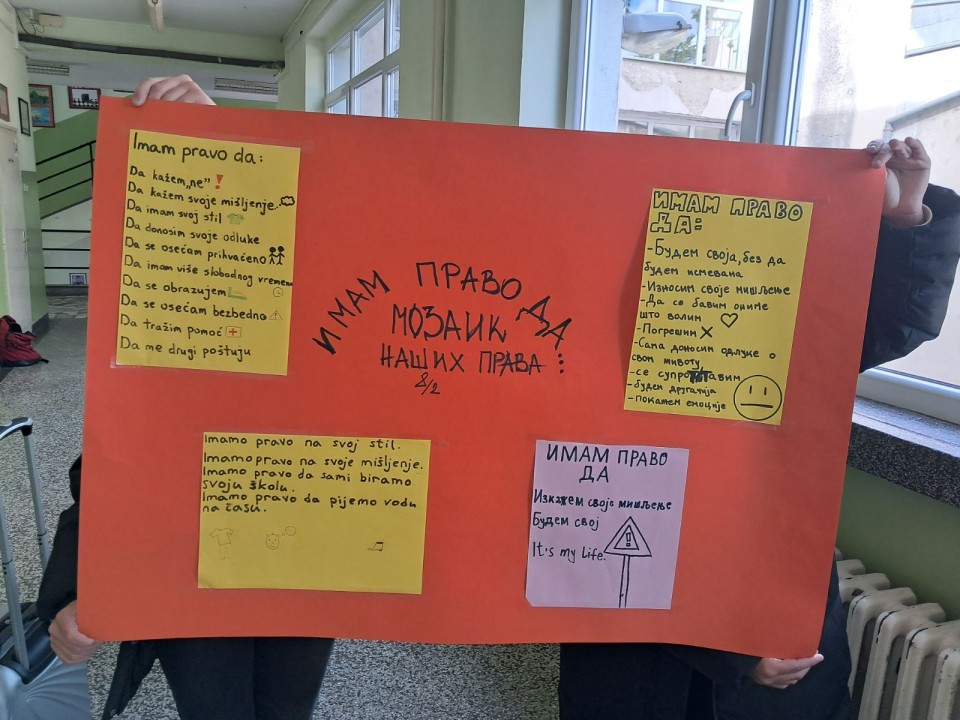 Imam pravo da:
Da kažem „ne” !
Da kažem svoje mišljenje.
Da imam svoj stil
Da donosim svoje odluke
Da se osećam prihvaćeno
Da imam više slobodnog vremena
Da se obrazujem
Da se osećam bezbedno
Da tražim pomoć
Da me drugi poštuju
ИМАМ ПРАВО ДА:
МОЗАИК
НАШИХ ПРАВА
8/2
ИМАМ ПРАВО
ДА:
-Будем своја, без да
будем исмевана
-Износим своје мишљење
-Да се бавим ониме
што волим
-Погрешим
-Сама доносим одлуке о
свом животу
-се супротставим
-будем другачија
-покажем емоције
Imamo pravo na svoj stil.
Imamo pravo na svoje mišljenje.
Imamo pravo da sami biramo
svoju školu.
Imamo pravo da pijemo vodu
na času.
ИМАМ ПРАВО
ДА
Изкажем своје мишљење
Будем свој
It's my Life.